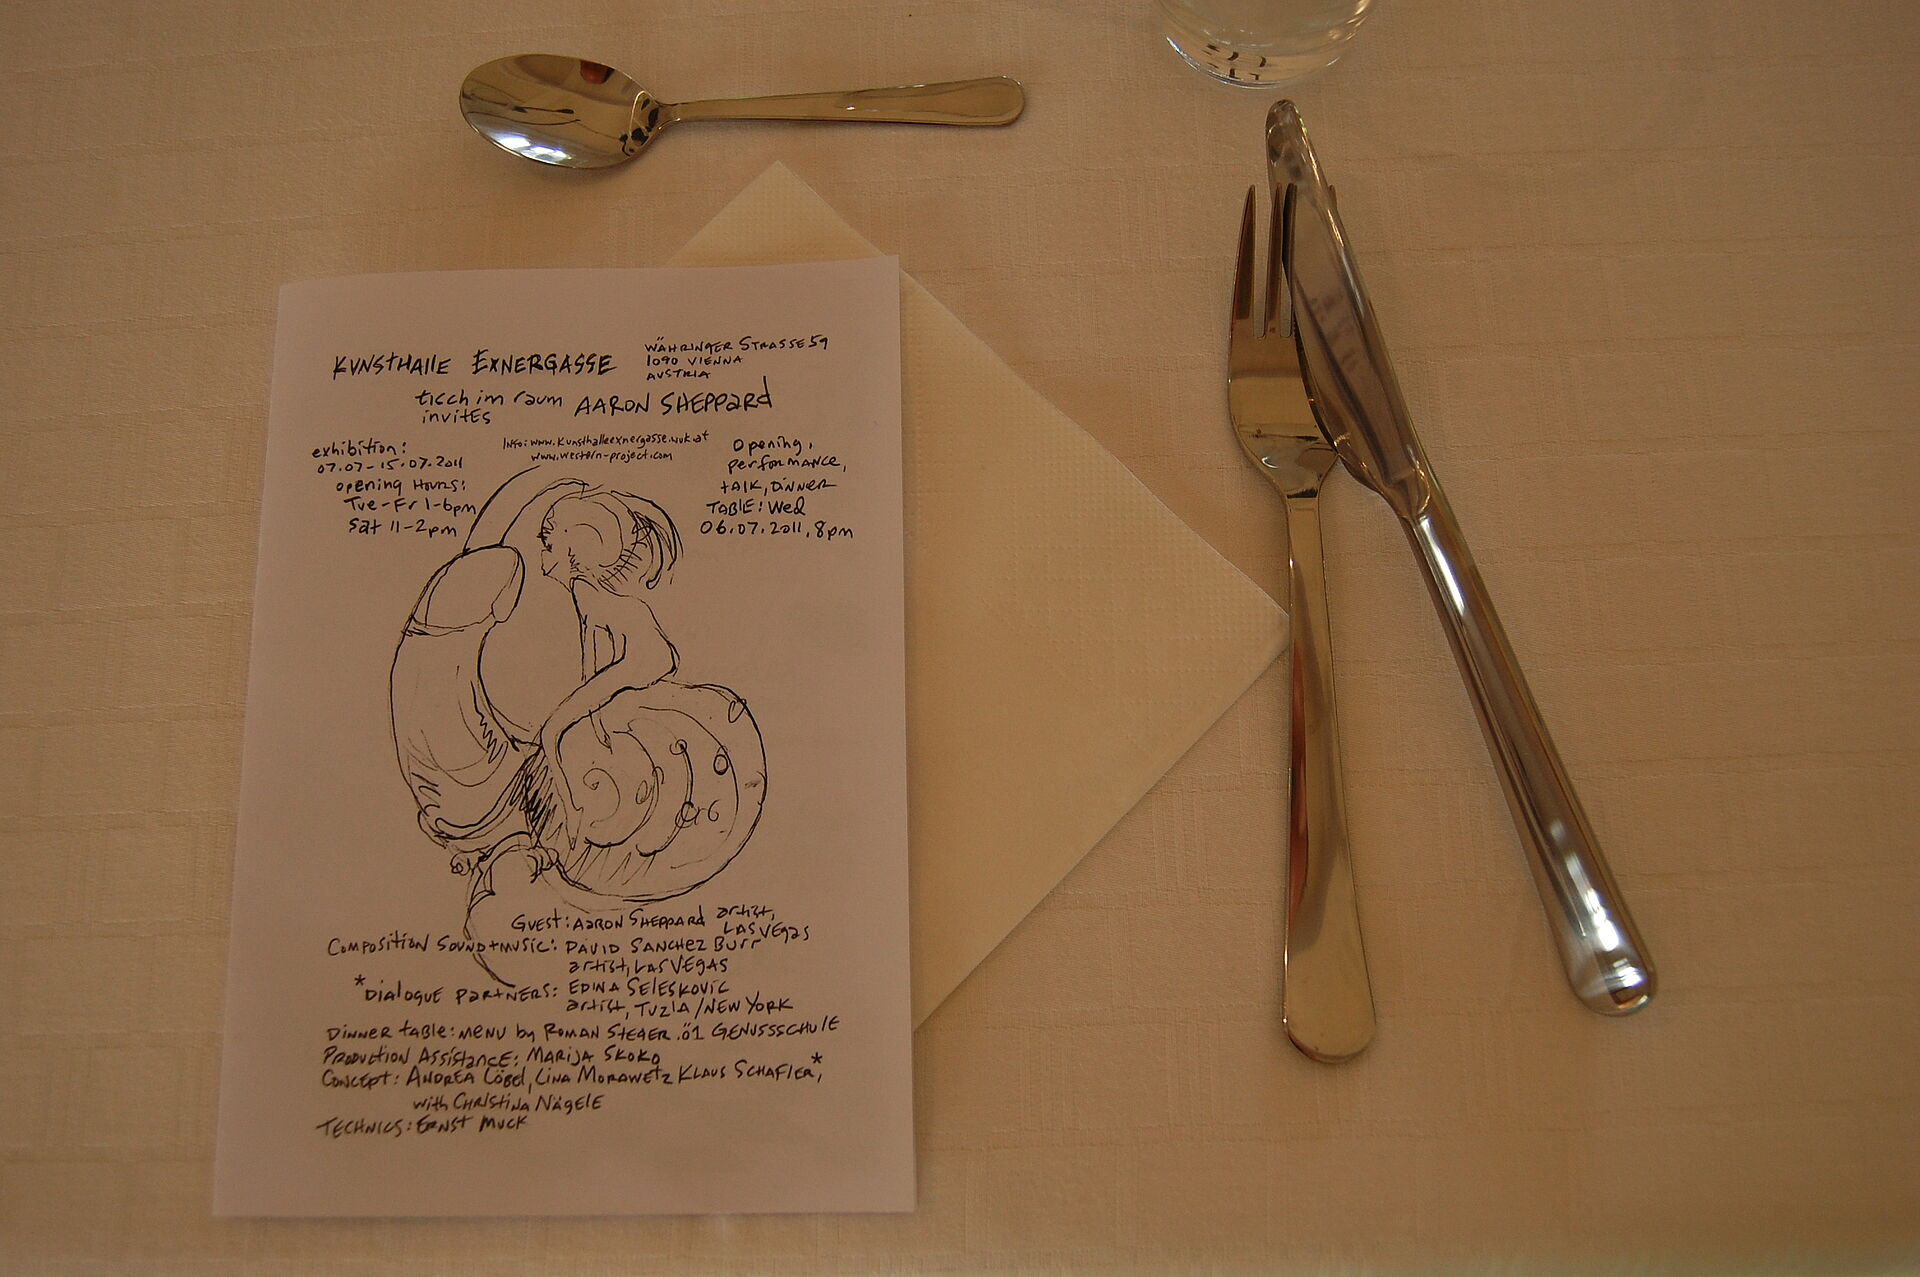 KUNSTHAllE EXNERGASSE
WÄHRINGER STRASSE 59
1090 VIENNA
AUSTRIA
tisch im raum
invites
AARON SHEPPARd
exhibition:
07.07-15.07.2011
opening Hours:
Tue-Fr 1-6pm
Sat 11-2pm
Info: www.kunsthalleexnergasse.wuk.at
www.western-project.com
Opening,
performance,
talk, Dinner
TABLE: Wed
06.07.2011, 8pm
Guest: AARON SHEPPARd artist,
LAS VEgas
Composition Sound+music: DAVID SANCHEZ BURr
artist, LAS VEGAS
*Dialogue PARtNERS: EDINA SELESKOVIC
artist, TUZLA/NEW YORK
Dinner table: MENU by ROMAN STEGER.ö1 GENUSSSCHUlE
PRODUCTION ASSISTANCE: MARIJA SKOKO
CONCEPT: ANDREA LÖBEL, LINA MORAWETZ KLAUS SCHAFLER*,
with CHRISTINA NÄGELE
TECHNICS: ERNST MUCK